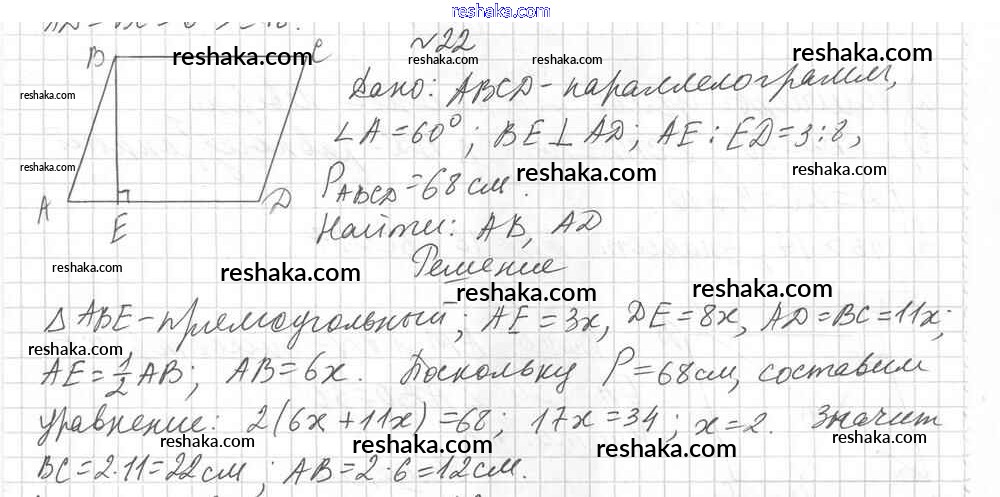 www.gdz.ru.com
reshaka.com
№22
reshaka.com
reshaka.com
reshaka.com
reshaka.com
B
C
Дано: ABCD - параллелограмм,
reshaka.com
∠A = 60°; BE ⊥ AD; AE : ED = 3:8,
reshaka.com
reshaka.com
P ABCD = 68 см.
A
E
D
Найти: AB, AD
reshaka.com
reshaka.com
Решение
reshaka.com
reshaka.com
Δ ABE - прямоугольный; AE = 3x, DE = 8x, AD = BC = 11x;
reshaka.com
reshaka.com
AE = 1/2 AB; AB = 6x. Поскольку P = 68 см, составим
уравнение: 2(6x + 11x) = 68; 17x = 34; x = 2. Значит
reshaka.com
reshaka.com
reshaka.com
reshaka.com
BC = 2·11 = 22 см; AB = 2·6 = 12 см.